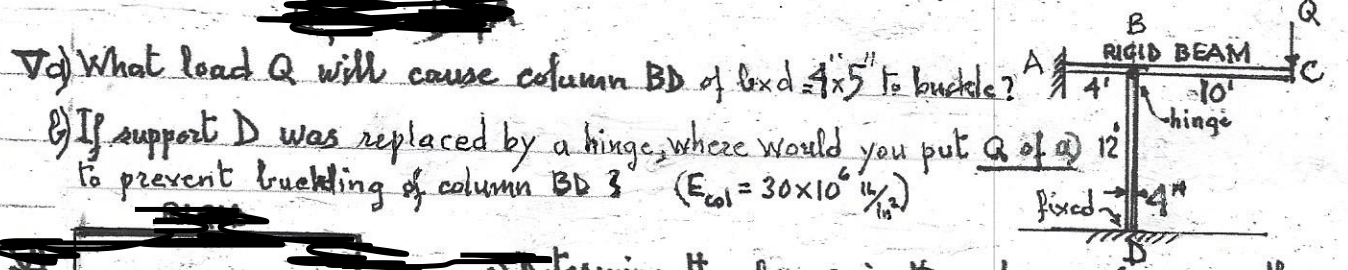 Va) What load Q will cause column BD of bxd = 4"x5" to buckle?
b) If support D was replaced by a hinge, where would you put Q of a)
to prevent buckling of column BD ? (Ecol = 30x10⁶ lb/in²)
Q
B
RIGID BEAM
A
C
4'
10'
hinge
12'
fixed
4"
D